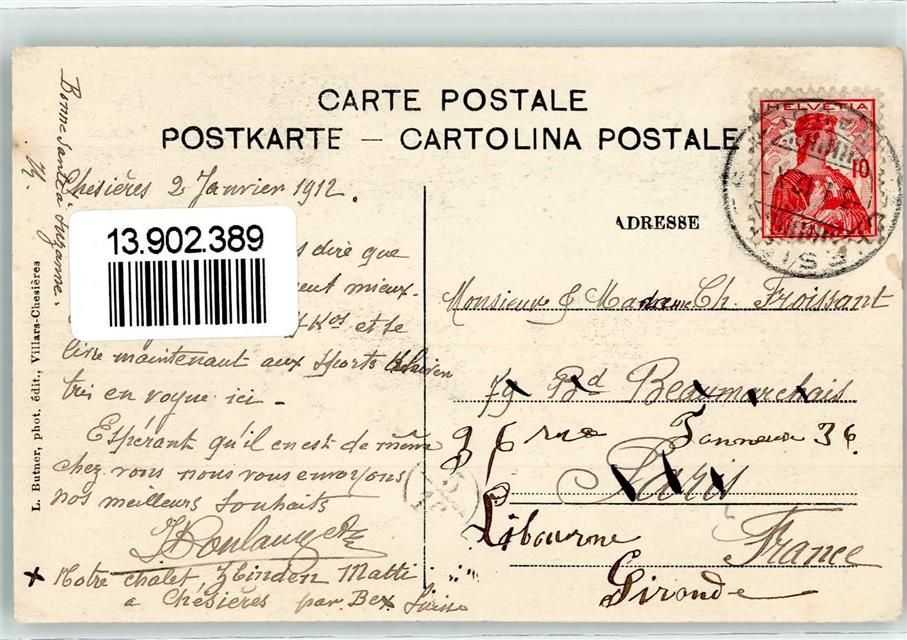 CARTE POSTALE
POSTKARTE – CARTOLINA POSTALE
ADRESSE
HELVETIA
10
L. Butner, phot. édit., Villars-Chesières
Bonne Santé à Suzanne.
Chesières 2 Janvier 1912.
13.902.389
dire que
mieux.
Kos et se
livre maintenant aux sports
très en vogue ici –
Espérant qu'il en est de même
chez vous nous vous envoyons
nos meilleurs souhaits
Notre chalet, Zbinden Matti
à Chesières par Bex Suisse
Monsieur & Madame Ch. Froissant
79 Bd Beaumarchais
36 rue Tonneux 36
Paris
Libourne
France
Gironde